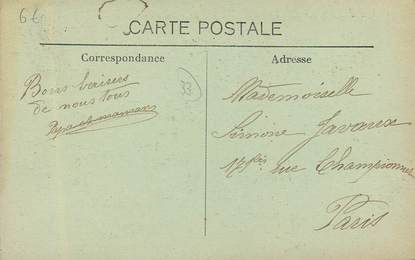 6€
CARTE POSTALE
Correspondance
Adresse
Bons baisers
de nous tous
Papa et maman
33
Mademoiselle
Simone Javaux
17 bis rue Championnet
Paris